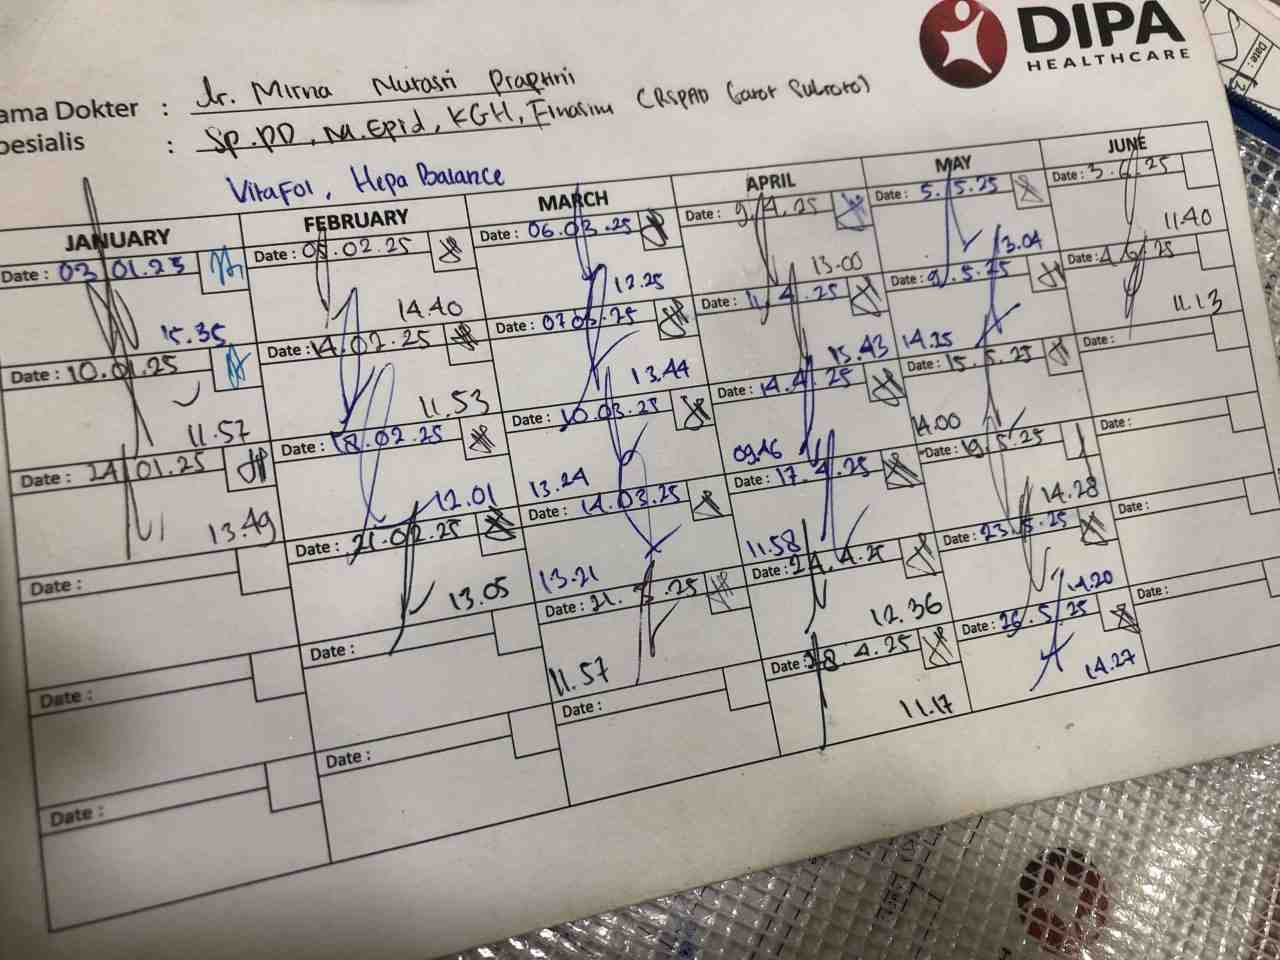 DIPA
HEALTHCARE
ama Dokter : dr. Mirna Nurasri Praptini
pesialis : Sp.PD, M.Epid, KGH, Finasim (RSPAD Gatot Subroto)
VitaFol, Hepa Balance
JANUARY
Date : 03.01.25
15.35
Date : 10.01.25
11.57
Date : 24.01.25
13.49
Date :
Date :
Date :
FEBRUARY
Date : 05.02.25
14.40
Date : 14.02.25
11.53
Date : 18.02.25
12.01
Date : 21.02.25
13.05
Date :
Date :
MARCH
Date : 06.03.25
12.25
Date : 07.03.25
13.44
Date : 10.03.25
13.24
Date : 14.03.25
13.21
Date : 21.3.25
11.57
Date :
APRIL
Date : 9.4.25
13.00
Date : 11.4.25
15.43
Date : 14.4.25
09.46
Date : 17.4.25
11.58
Date : 24.4.25
12.36
Date : 28.4.25
11.17
MAY
Date : 5.5.25
13.04
Date : 9.5.25
14.25
Date : 15.5.25
14.00
Date : 19.5.25
14.28
Date : 23.5.25
14.20
Date : 26.5.25
14.27
JUNE
Date : 3.6.25
11.40
Date : 4.6.25
11.13
Date :
Date :
Date :
Date :
Date :